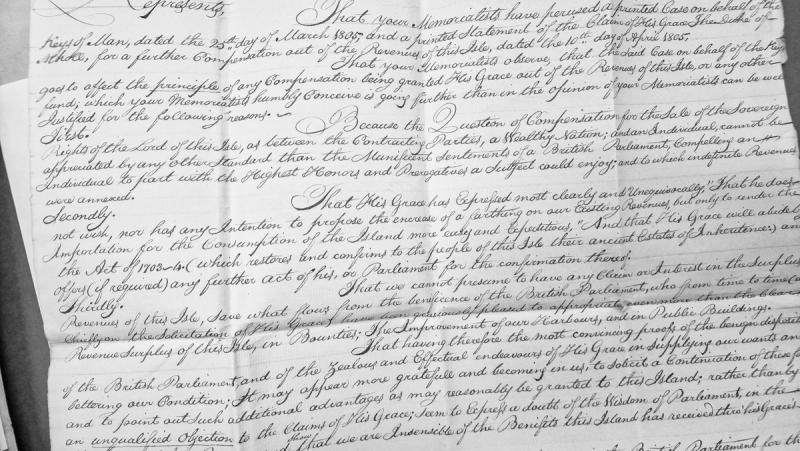 Represents,
That your Memorialists have perused a printed Case on behalf of the
Keys of Man, dated the 25th day of March 1805, and a printed Statement of the Claim of His Grace The Duke of
Atholl, for a further Compensation out of the Revenues of this Isle, dated the 10th day of April 1805.
That your Memorialists observe, that the said Case on behalf of the Keys
goes to affect the principle of any Compensation being granted His Grace out of the Revenues of this Isle, or any other
fund; which your Memorialists humbly Conceive is going further than in the opinion of your Memorialists can be well
Justified for the following reasons. ~
First. Because the Question of Compensation for the Sale of the Sovereign
Rights of the Lord of this Isle, as between the Contracting Parties, a Wealthy Nation; and an Individual, cannot be
appreciated by any other Standard than the Munificent Sentiments of a British Parliament, Compelling an
Individual to part with the Highest Honors and Prerogatives a Subject could enjoy; and to which indefinite Revenues
were annexed.
Secondly. That His Grace has Expressed most clearly and Unequivocally, "That he does
not wish, nor has any Intention to propose the increase of a farthing on our Existing Revenues, but only to render the
Importation for the Consumption of the Island more easy and Expeditious," And that His Grace will abide by
the Act of 1703-4 (which restores and confirms to the people of this Isle their ancient Estates of Inheritance) and
offers (if required) any further act of his, or Parliament for the confirmation thereof.
Thirdly. That we cannot presume to have any Claim or Interest in the Surplus
Revenues of this Isle, save what flows from the beneficence of the British Parliament, who from time to time (and
Chiefly on the Solicitation of His Grace) have been graciously pleased to appropriate even more than the Clear
Revenue Surplus of this Isle, in Bounties; The Improvement of our Harbours, and in Public Buildings.
That having therefore the most convincing proofs of the benign disposit
of the British Parliament, and of the Zealous and Effectual endeavours of His Grace in supplying our wants and
bettering our Condition; It may appear more gratefull and becoming in us, to Solicit a Continuation of these fa
and to point out such additional advantages as may reasonably be granted to this Island; rather than by
an unqualified Objection to the Claims of His Grace; seem to Express a doubt of the Wisdom of Parliament, in the
that we are Insensible of the Benefits this Island has received thro' his Grace's
British Parliament for th